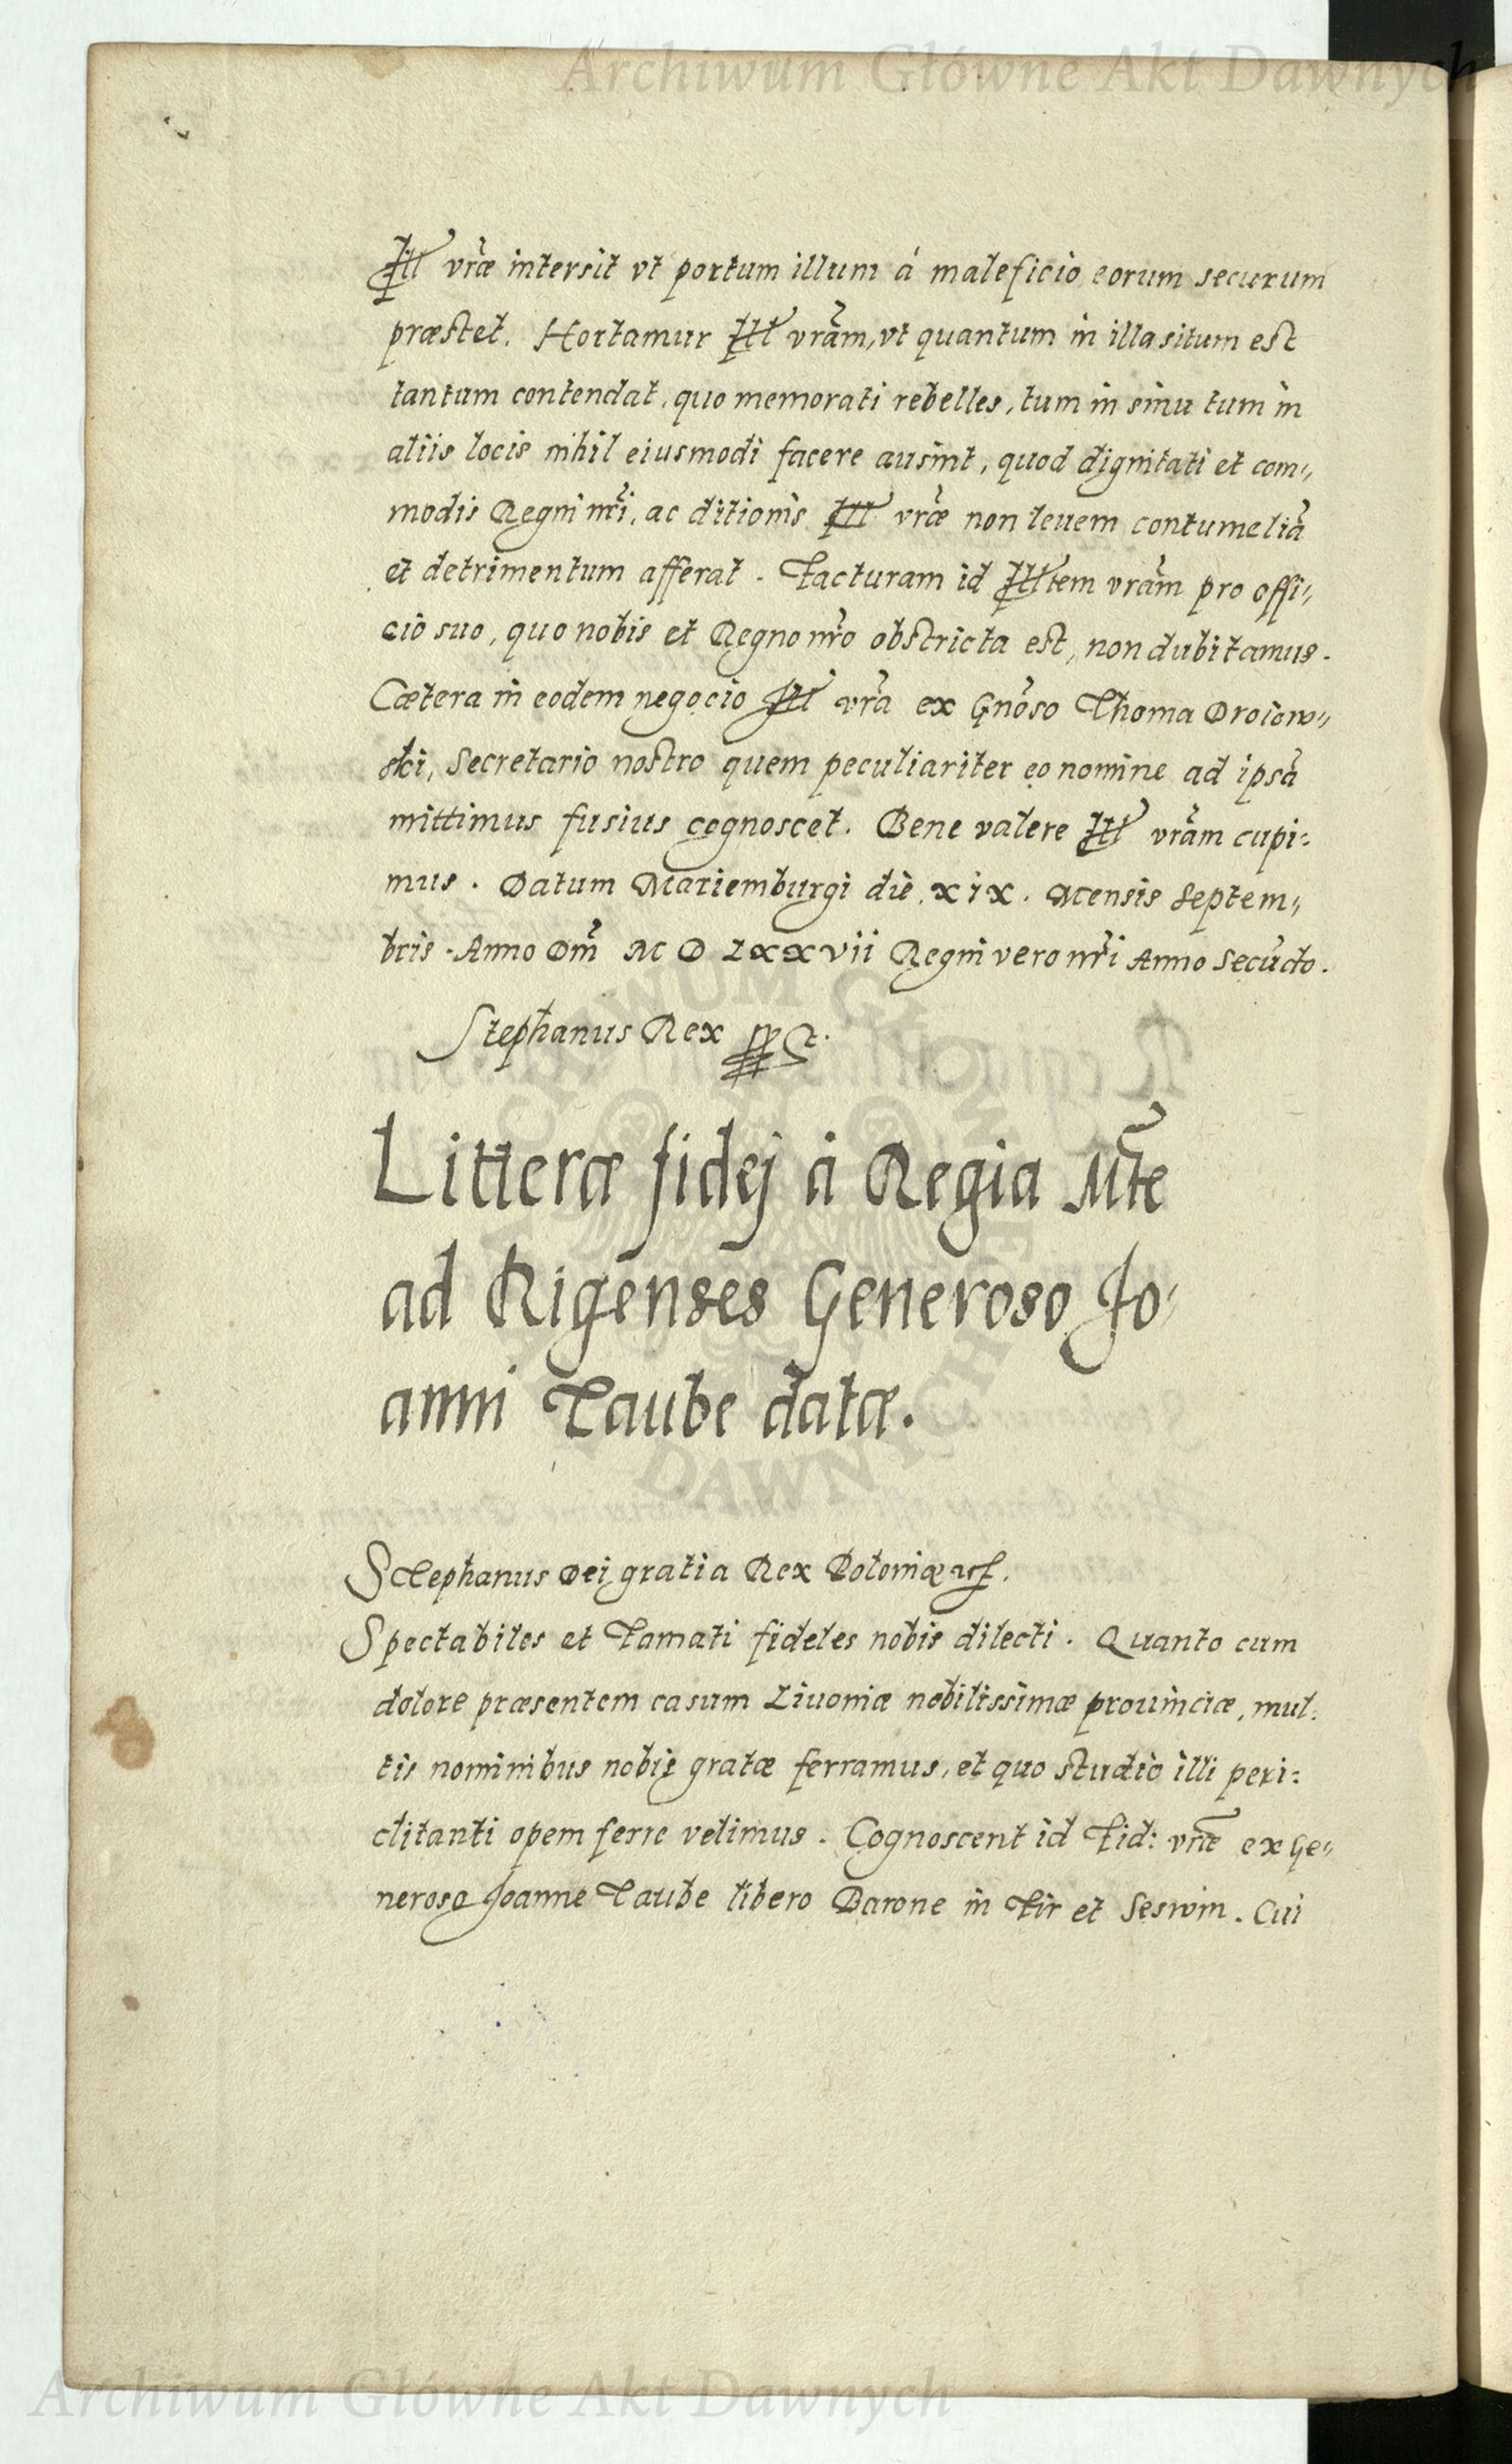 Archiwum Główne Akt Dawnych
Ill vr̃æ intersit vt portum illum á maleficio eorum securum
præstet. Hortamur Ill vrãm, vt quantum in illa situm est
tantum contendat, quo memorati rebelles, tum in sinu tum in
aliis locis nihil eiusmodi facere ausint, quod dignitati et com„
modis Regni nr̃i, ac ditionis Ill vr̃æ non leuem contumeliã
et detrimentum afferat. Facturam id Illtem vrãm pro offi„
cio suo, quo nobis et Regno nr̃o obstricta est, non dubitamus.
Cætera in eodem negocio Ill vr̃a ex Gnõso Thoma Droiow„
ski, Secretario nostro quem peculiariter eo nomine ad ipsã
mittimus fusius cognoscet. Bene valere Ill vrãm cupi:
mus. Datum Mariemburgi die xix. Mensis Septem„
bris. Anno Dm̃ M D LXXVII Regni vero nr̃i Anno Secũdo.
Stephanus Rex
Litteræ fidej á Regia Mt̃e
ad Rigenses Generoso Jo„
anni Taube datæ.
Stephanus Dei gratia Rex Poloniæ etc.
Spectabiles et Famati fideles nobis dilecti. Quanto cum
dolore præsentem casum Liuoniæ nobilissimæ prouinciæ, mul.
tis nominibus nobis gratæ ferramus, et quo studio illi peri:
clitanti opem ferre velimus. Cognoscent id Fid: vr̃æ ex Ge„
neroso Joanne Taube libero Barone in Fir et Seswin. Cui
ARCHIWUM GŁÓWNE AKT DAWNYCH
Archiwum Główne Akt Dawnych